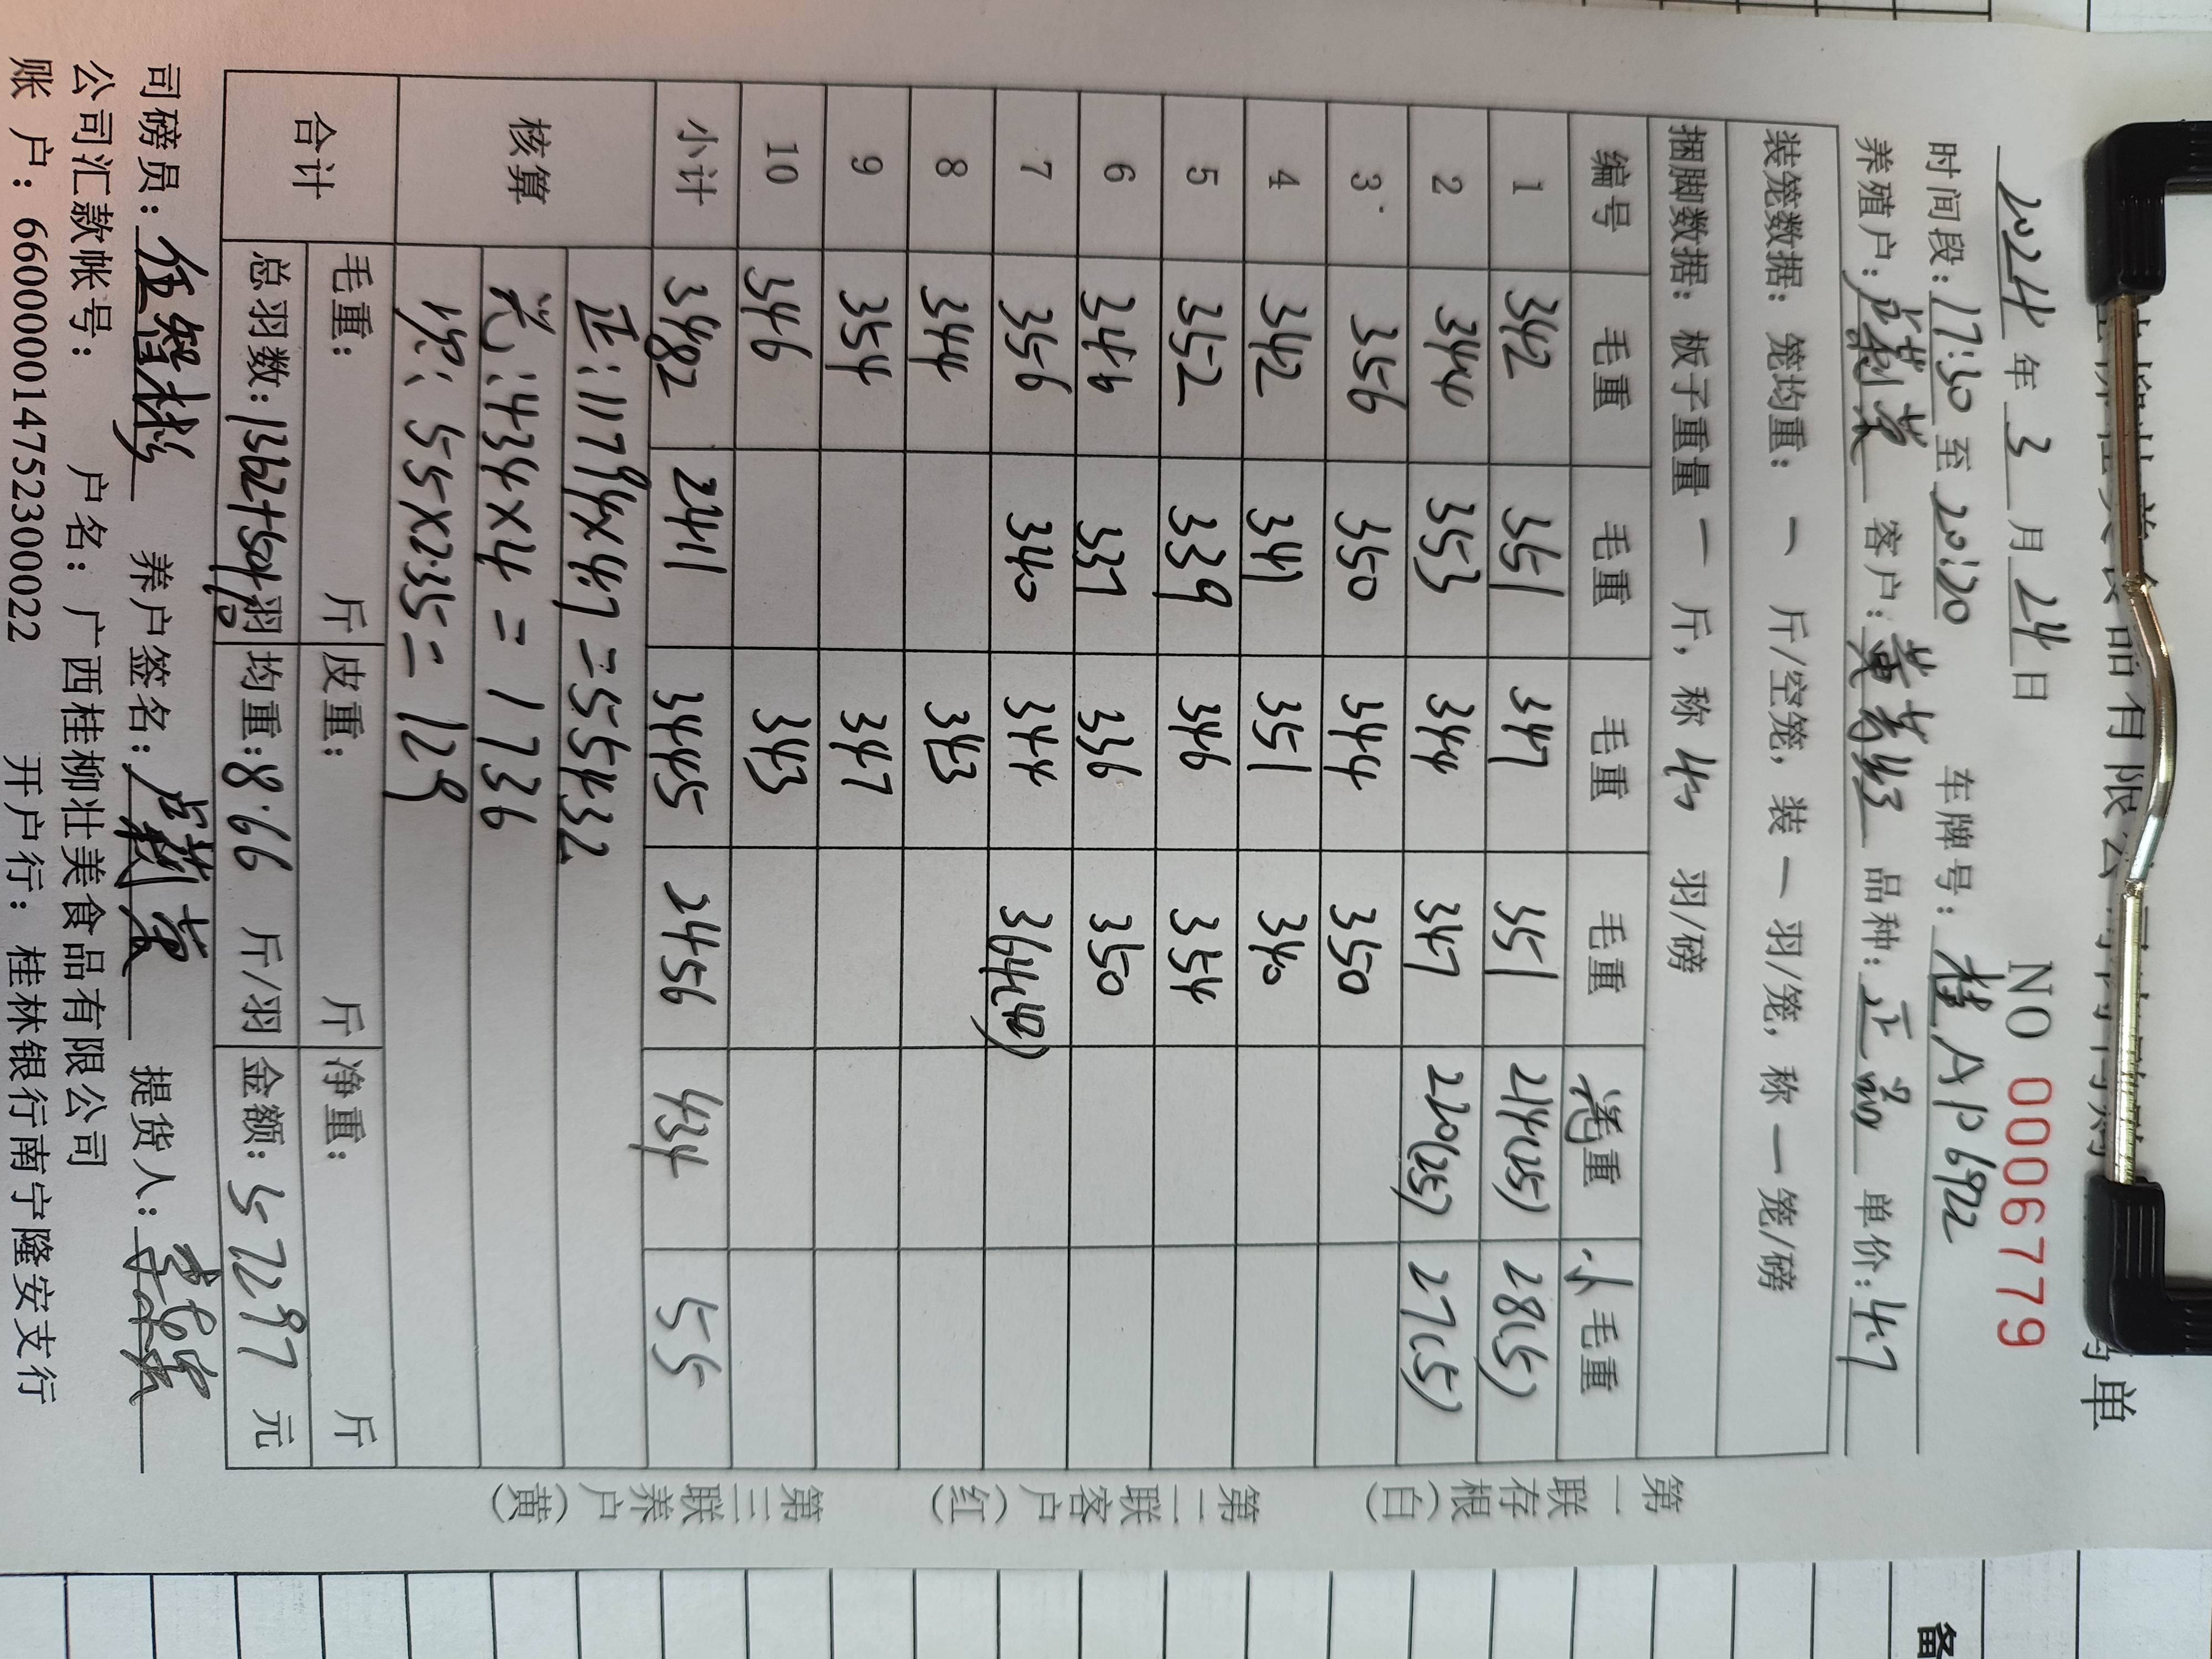 NO 0006779
2024 年 3 月 24 日 车牌号: 桂AP6922
时间段: 17:30 至 20:20
养殖户: 客户: 品种: 正品 单价: 4.7
装笼数据: 笼均重: 一 斤/空笼, 装 一 羽/笼, 称 一 笼/磅
捆脚数据: 板子重量 一 斤, 称 40 羽/磅
编号 毛重 毛重 毛重 毛重 毛重 小毛重
1 342 351 347 351 214(25) 28(5)
2 344 353 344 347 220(25) 27(5)
3 356 350 344 350
4 342 341 351 340
5 352 339 346 354
6 346 337 336 350
7 356 340 344 364(42)
8 344 343
9 354 347
10 346 343
小计 3482 2411 3445 2456 434 55
核算 正: 11794×4.7=55432
光: 434×4=1736
55×2.35=129
合计 毛重: 斤 皮重: 斤 净重: 斤
总羽数: 1362+50+10 羽 均重: 8.66 斤/羽 金额: 57297 元
司磅员: 养户签名: 提货人:
公司汇款帐号: 户名: 广西桂柳壮美食品有限公司
账 户: 660000014752300022 开户行: 桂林银行南宁隆安支行
第一联存根(白) 第二联客户(红) 第三联养户(黄)
备